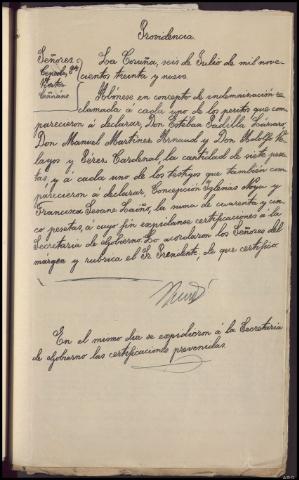 Providencia
Señores
La Coruña, seis de Julio de mil nove-
cientos treinta y nueve.
Abónese en concepto de indemnización re-
clamada á cada uno de los peritos que com-
parecieron á declarar, Don Esteban Padilla
Don Manuel Martinez y Don Adolfo
y Pérez Cardenal, la cantidad de siete pese-
tas, y á cada uno de los testigos que también com-
parecieron á declarar Concepción Iglesias y
Francisca Seoane la suma de cuarenta y cin-
co pesetas, á cuyo fin expídanse certificaciones á la
Secretaría de Gobierno. Lo acordaron los Señores del
márgen y rubrica el Sr. Presidente, de que certifico
En el mismo dia se expidieron á la Secretaria
de Gobierno las certificaciones prevenidas.